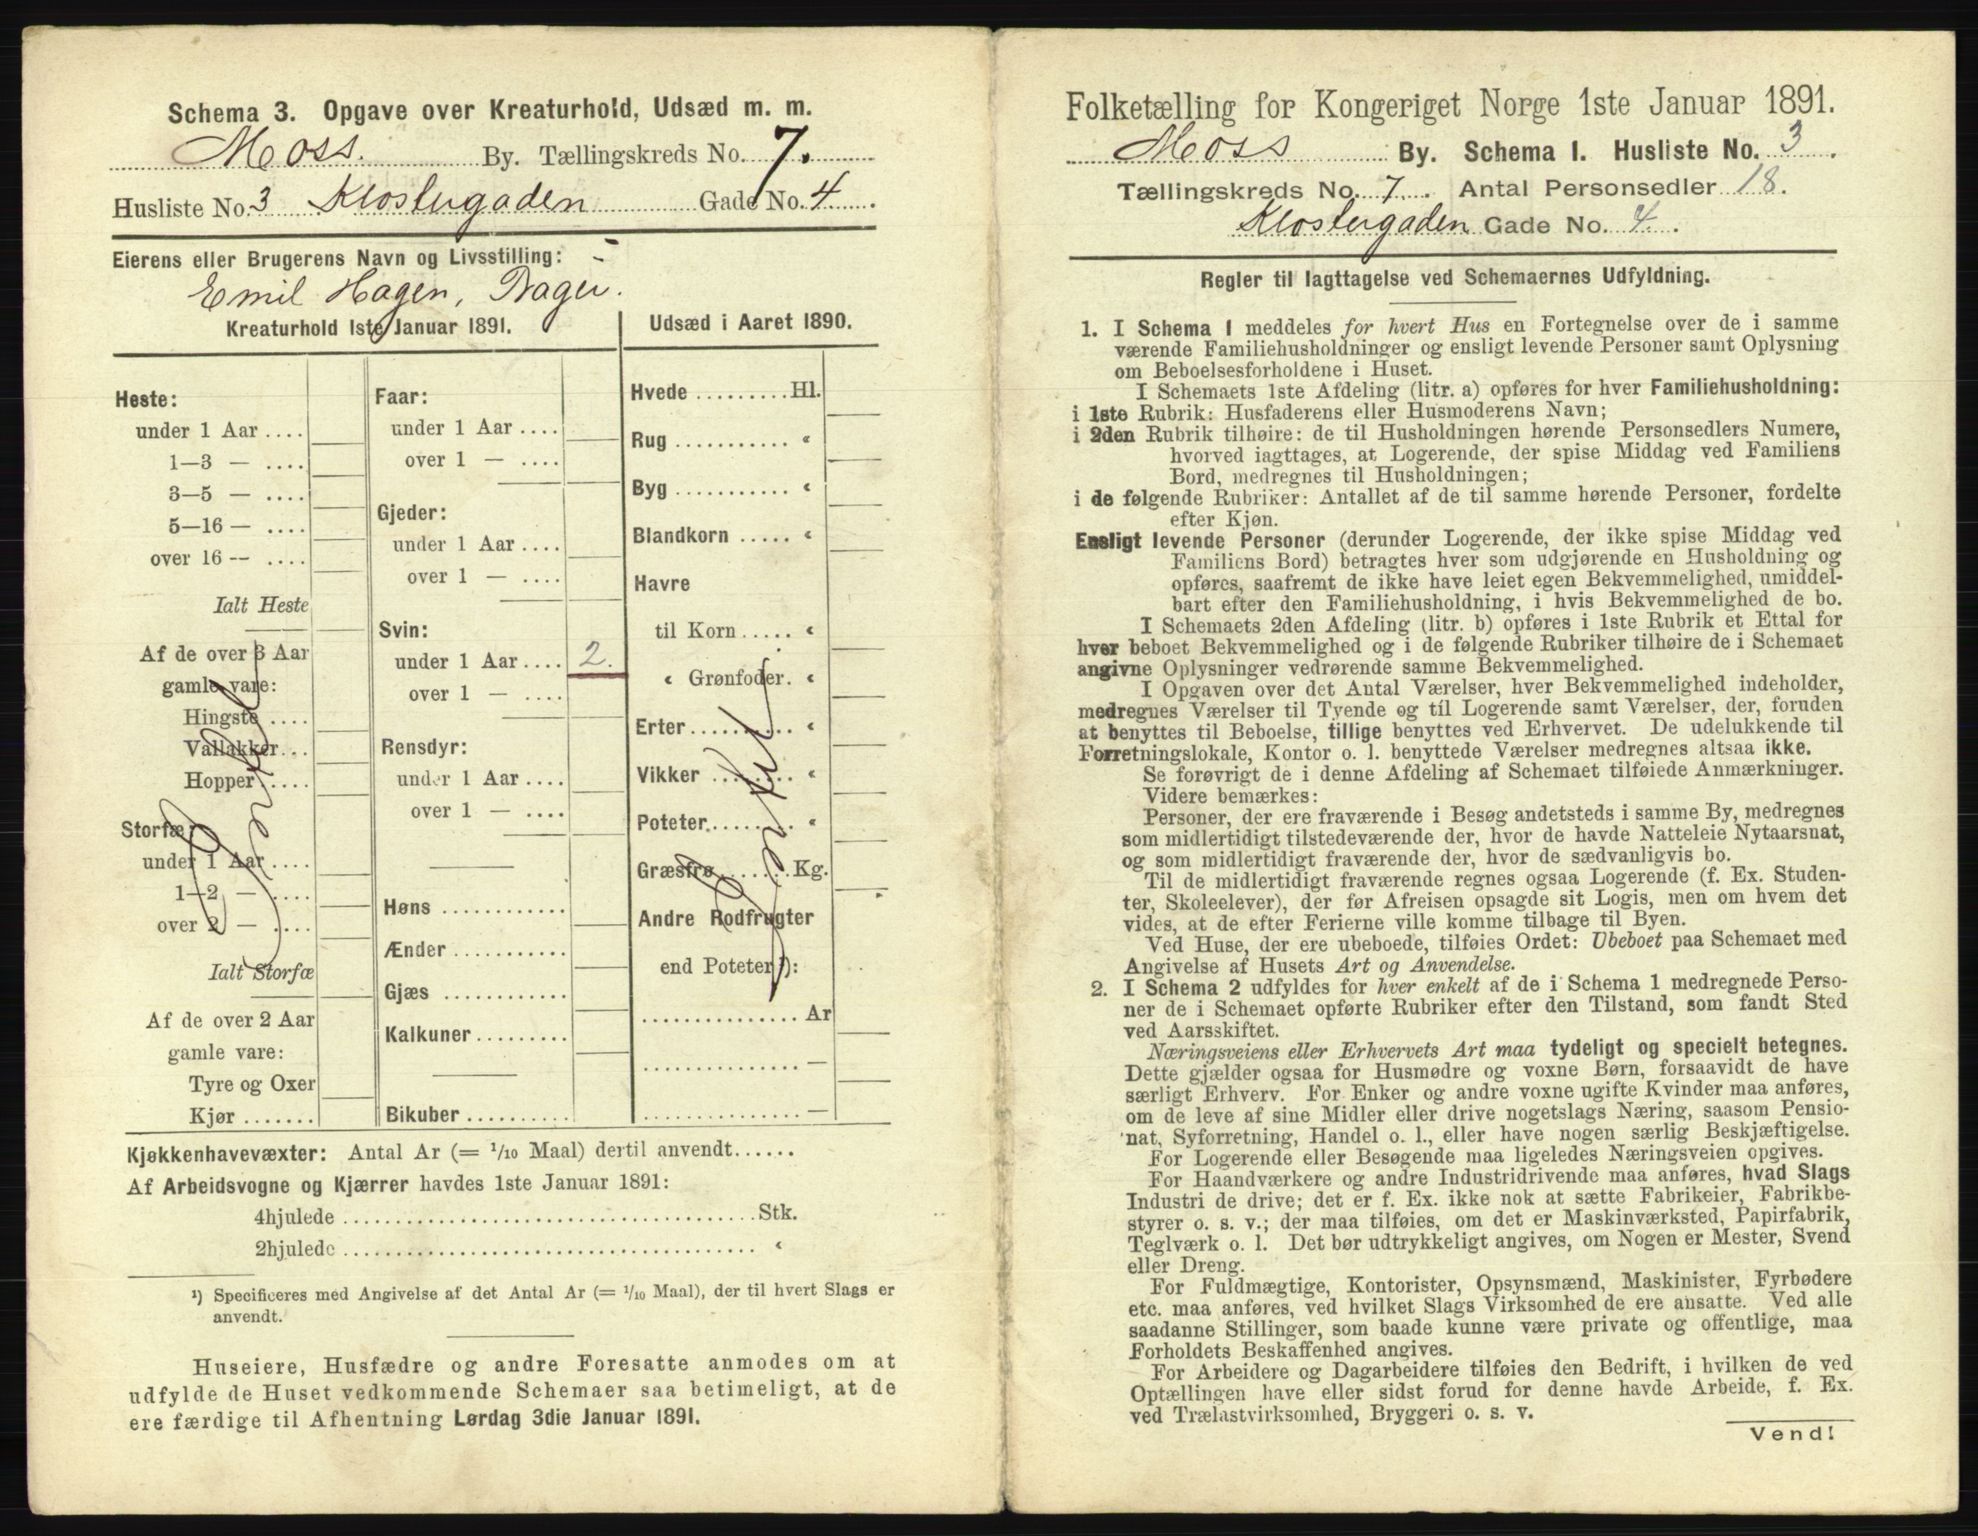 Schema 3. Opgave over Kreaturhold, Udsæd m. m.
Moss. By. Tællingskreds No. 7.
Husliste No. 3 Klostergaden Gade No. 4.
Eierens eller Brugerens Navn og Livsstilling:
Emil Hagen, Bager.
Kreaturhold 1ste Januar 1891.
Heste:
under 1 Aar ....
1—3 — ....
3—5 — ....
5—16 — ....
over 16 — ....
Ialt Heste
Af de over 3 Aar
gamle vare:
Hingste ....
Vallakker...
Hopper ....
Storfæ:
under 1 Aar....
1—2 — ....
over 2 — ....
Ialt Storfæ
Af de over 2 Aar
gamle vare:
Tyre og Oxer
Kjør .......
Faar:
under 1 Aar ....
over 1 — ....
Gjeder:
under 1 Aar ....
over 1 — ....
Svin:
under 1 Aar .... 2.
over 1 — ....
Rensdyr:
under 1 Aar ....
over 1 — ....
Høns ............
Ænder ...........
Gjæs ............
Kalkuner .........
Bikuber ..........
Udsæd i Aaret 1890.
Hvede ......... Hl.
Rug ........... «
Byg ........... «
Blandkorn ..... «
Havre
til Korn ..... «
« Grønfoder. «
Erter .......... «
Vikker ........ «
Poteter ........ «
Græsfrø ....... Kg.
Andre Rodfrugter
end Poteter ¹):
............... Ar
............... —
............... —
Kjøkkenhavevæxter: Antal Ar (= 1/10 Maal) dertil anvendt......
Af Arbeidsvogne og Kjærrer havdes 1ste Januar 1891:
4hjulede ....................................... Stk.
2hjulede ....................................... «
¹) Specificeres med Angivelse af det Antal Ar (= 1/10 Maal), der til hvert Slags er
anvendt.
Huseiere, Husfædre og andre Foresatte anmodes om at
udfylde de Huset vedkommende Schemaer saa betimeligt, at de
ere færdige til Afhentning Lørdag 3die Januar 1891.
Folketælling for Kongeriget Norge 1ste Januar 1891.
Moss By. Schema 1. Husliste No. 3.
Tællingskreds No. 7. Antal Personsedler 18.
Klostergaden Gade No. 4.
Regler til Iagttagelse ved Schemaernes Udfyldning.
1. I Schema 1 meddeles for hvert Hus en Fortegnelse over de i samme
værende Familiehusholdninger og ensligt levende Personer samt Oplysning
om Beboelsesforholdene i Huset.
I Schemaets 1ste Afdeling (litr. a) opføres for hver Familiehusholdning:
i 1ste Rubrik: Husfaderens eller Husmoderens Navn;
i 2den Rubrik tilhøire: de til Husholdningen hørende Personsedlers Numere,
hvorved iagttages, at Logerende, der spise Middag ved Familiens
Bord, medregnes til Husholdningen;
i de følgende Rubriker: Antallet af de til samme hørende Personer, fordelte
efter Kjøn.
Ensligt levende Personer (derunder Logerende, der ikke spise Middag ved
Familiens Bord) betragtes hver som udgjørende en Husholdning og
opføres, saafremt de ikke have leiet egen Bekvemmelighed, umiddel-
bart efter den Familiehusholdning, i hvis Bekvemmelighed de bo.
I Schemaets 2den Afdeling (litr. b) opføres i 1ste Rubrik et Ettal for
hver beboet Bekvemmelighed og i de følgende Rubriker tilhøire de i Schemaet
angivne Oplysninger vedrørende samme Bekvemmelighed.
I Opgaven over det Antal Værelser, hver Bekvemmelighed indeholder,
medregnes Værelser til Tyende og til Logerende samt Værelser, der, foruden
at benyttes til Beboelse, tillige benyttes ved Erhvervet. De udelukkende til
Forretningslokale, Kontor o. l. benyttede Værelser medregnes altsaa ikke.
Se forøvrigt de i denne Afdeling af Schemaet tilføiede Anmærkninger.
Videre bemærkes:
Personer, der ere fraværende i Besøg andetsteds i samme By, medregnes
som midlertidigt tilstedeværende der, hvor de havde Natteleie Nytaarsnat,
og som midlertidigt fraværende der, hvor de sædvanligvis bo.
Til de midlertidigt fraværende regnes ogsaa Logerende (f. Ex. Studen-
ter, Skoleelever), der før Afreisen opsagde sit Logis, men om hvem det
vides, at de efter Ferierne ville komme tilbage til Byen.
Ved Huse, der ere ubeboede, tilføies Ordet: Ubeboet paa Schemaet med
Angivelse af Husets Art og Anvendelse.
2. I Schema 2 udfyldes for hver enkelt af de i Schema 1 medregnede Perso-
ner de i Schemaet opførte Rubriker efter den Tilstand, som fandt Sted
ved Aarsskiftet.
Næringsveiens eller Erhvervets Art maa tydeligt og specielt betegnes.
Dette gjælder ogsaa for Husmødre og voxne Børn, forsaavidt de have
særligt Erhverv. For Enker og andre voxne ugifte Kvinder maa anføres,
om de leve af sine Midler eller drive nogetslags Næring, saasom Pensio-
nat, Syforretning, Handel o. l., eller have nogen særlig Beskjæftigelse.
For Logerende eller Besøgende maa ligeledes Næringsveien opgives.
For Haandværkere og andre Industridrivende maa anføres, hvad Slags
Industri de drive; det er f. Ex. ikke nok at sætte Fabrikeier, Fabrikbe-
styrer o. s. v.; der maa tilføies, om det er Maskinværksted, Papirfabrik,
Teglværk o. l. Det bør udtrykkeligt angives, om Nogen er Mester, Svend
eller Dreng.
For Fuldmægtige, Kontorister, Opsynsmænd, Maskinister, Fyrbødere
etc. maa anføres, ved hvilket Slags Virksomhed de ere ansatte. Ved alle
saadanne Stillinger, som baade kunne være private og offentlige, maa
Forholdets Beskaffenhed angives.
For Arbeidere og Dagarbeidere tilføies den Bedrift, i hvilken de ved
Optællingen have eller sidst forud for denne havde Arbeide, f. Ex.
ved Trælastvirksomhed, Bryggeri o. s. v.
Vend!